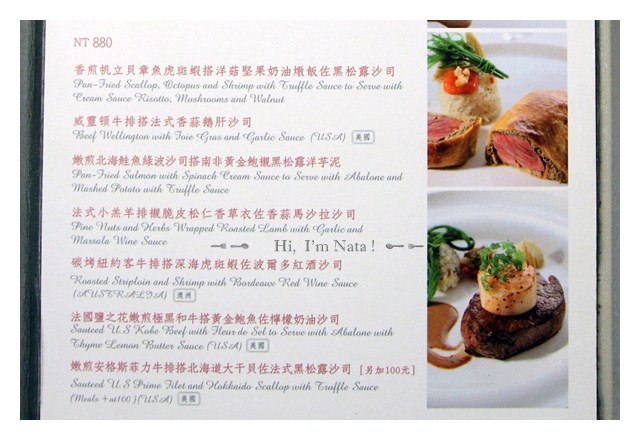 NT 880
香煎帆立貝章魚虎斑蝦搭洋菇堅果奶油燉飯佐黑松露沙司
Pan-Fried Scallop, Octopus and Shrimp with Truffle Sauce to Serve with
Cream Sauce Risotto, Mushrooms and Walnut
威靈頓牛排搭法式香蒜鵝肝沙司
Beef Wellington with Foie Gras and Garlic Sauce (USA) 美國
嫩煎北海鮭魚綠波沙司搭南非黃金鮑襯黑松露洋芋泥
Pan-Fried Salmon with Spinach Cream Sauce to Serve with Abalone and
Mashed Potato with Truffle Sauce
法式小羔羊排襯脆皮松仁香草衣佐香蒜馬沙拉沙司
Pine Nuts and Herbs Wrapped Roasted Lamb with Garlic and
Marsala Wine Sauce
Hi, I'm Nata !
碳烤紐約客牛排搭深海虎斑蝦佐波爾多紅酒沙司
Roasted Striploin and Shrimp with Bordeaux Red Wine Sauce
(AUSTRALIA) 澳洲
法國鹽之花嫩煎極黑和牛搭黃金鮑魚佐檸檬奶油沙司
Sauteed U.S Kobe Beef with Fleur de Sel to Serve with Abalone with
Thyme Lemon Butter Sauce (USA) 美國
嫩煎安格斯菲力牛排搭北海道大干貝佐法式黑松露沙司 [另加100元]
Sauteed U.S Prime Filet and Hokkaido Scallop with Truffle Sauce
(Meals +nt100)(USA) 美國